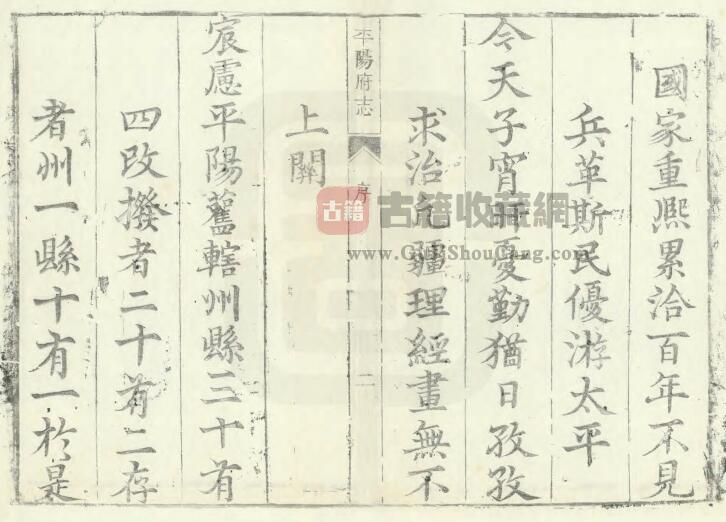 國家重熙累洽百年不見
兵革斯民優游太平
今天子宵旰憂勤猶日孜孜
求治凡疆理經畫無不
平陽府志 序 二
上關
宸慮平陽舊轄州縣三十有
四改撥者二十有二存
者州一縣十有一於是
古籍 古籍收藏網
www.GujiShouCang.com